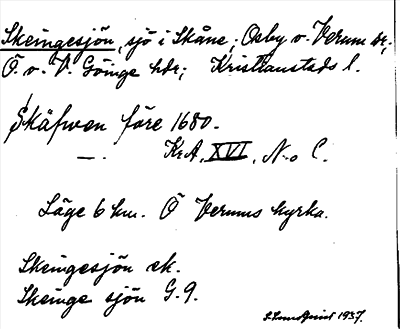 Skeingesjön, sjö i Skåne; Osby o. Verums sn;
Ö. o. V. Göinge hdr; Kristianstads l.
Skäfwen före 1680.
— . Kr.A. XVI, N:o C.
Läge 6 km. Ö Verums kyrka.
Skeingesjön ek.
Skeinge sjön G. 9.
1937.